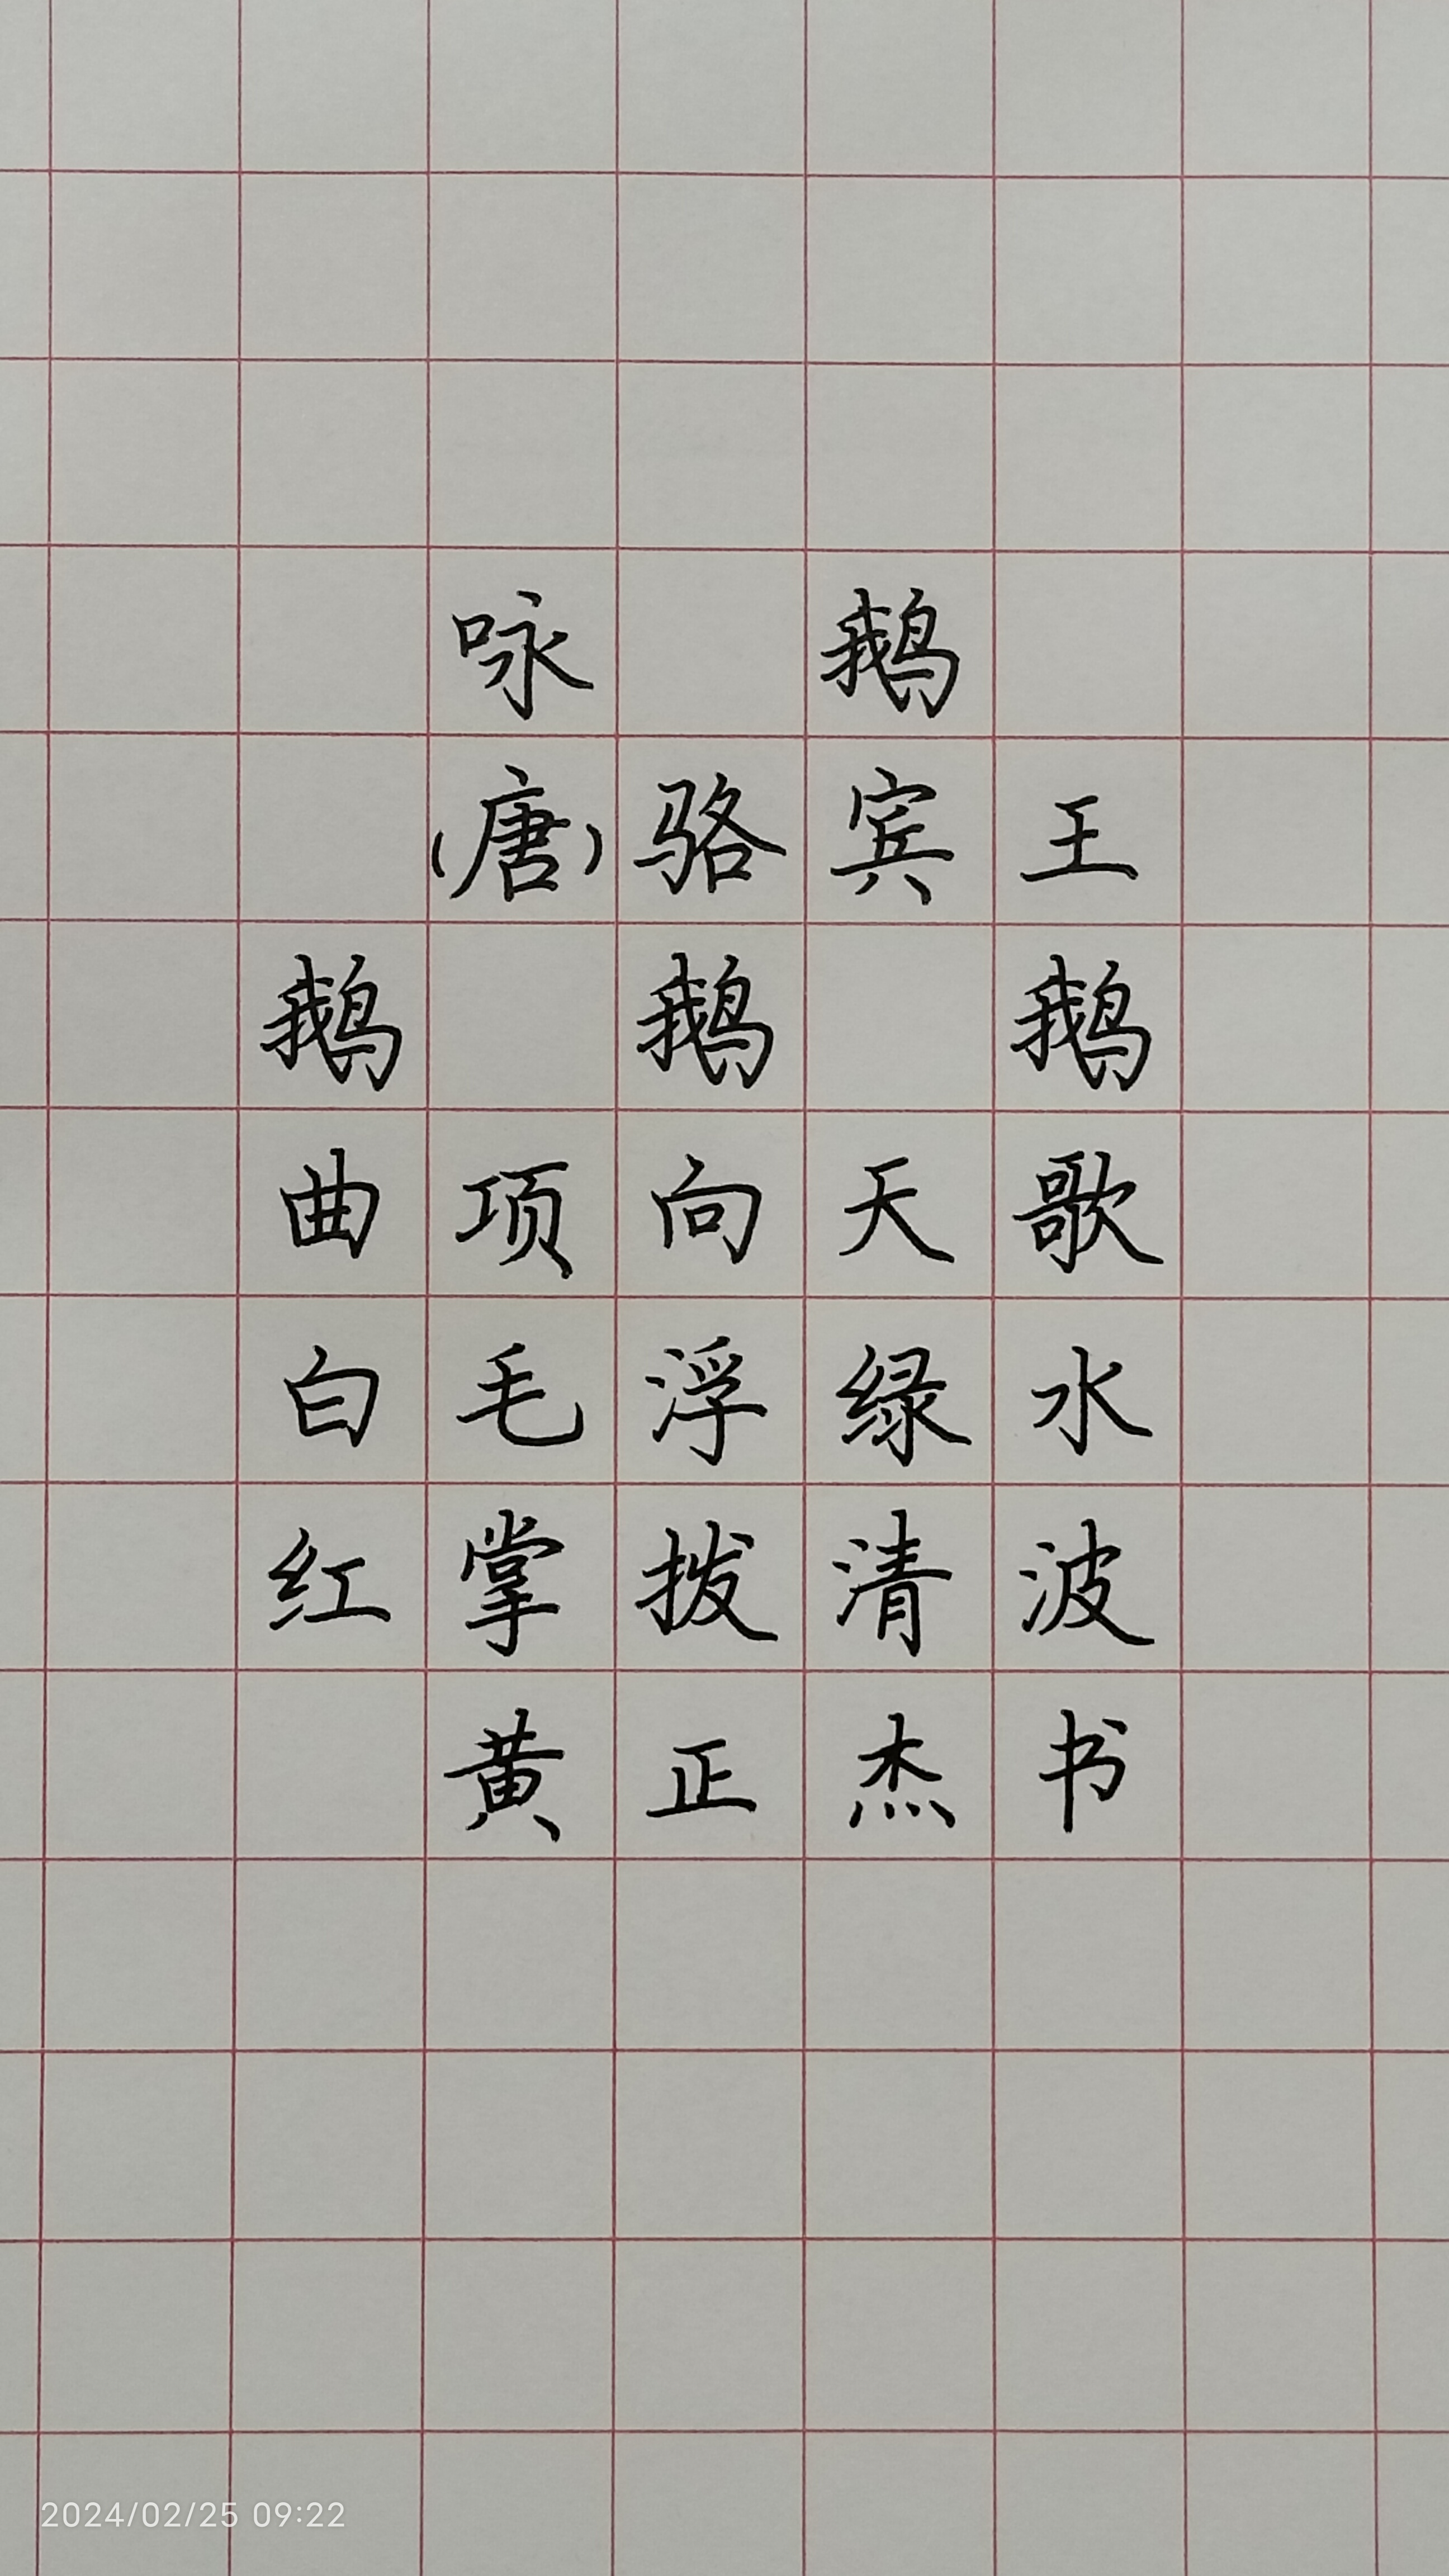 咏 鹅
（唐）骆宾王
鹅 鹅 鹅
曲项向天歌
白毛浮绿水
红掌拨清波
黄正杰书
2024/02/25 09:22